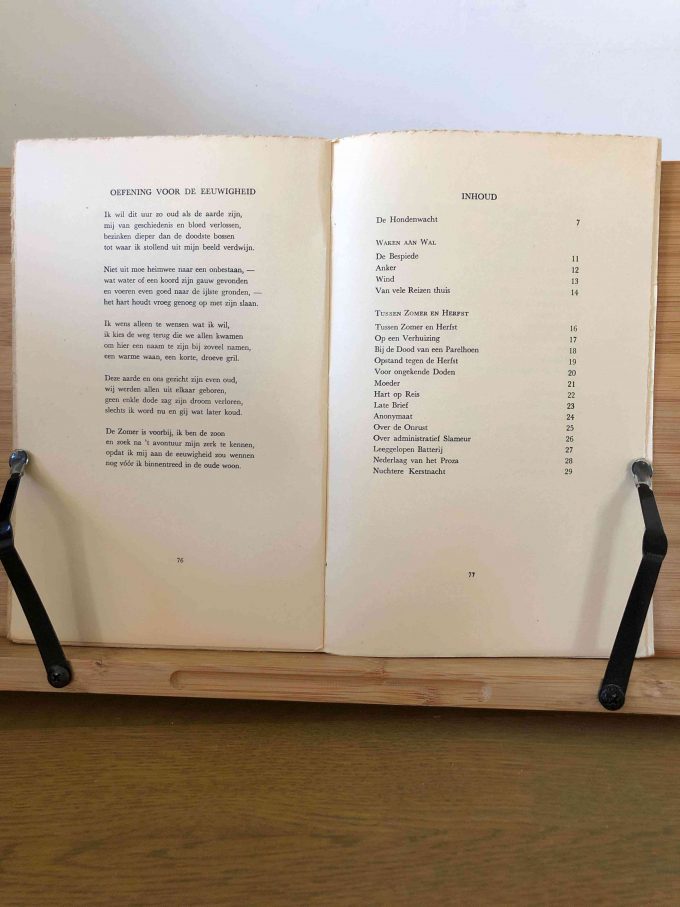 OEFENING VOOR DE EEUWIGHEID
Ik wil dit uur zo oud als de aarde zijn,
mij van geschiedenis en bloed verlossen,
bezinken dieper dan de doodste bossen
tot waar ik stollend uit mijn beeld verdwijn.
Niet uit moe heimwee naar een onbestaan, —
wat water of een koord zijn gauw gevonden
en voeren even goed naar de ijlste gronden, —
het hart houdt vroeg genoeg op met zijn slaan.
Ik wens alleen te wensen wat ik wil,
ik kies de weg terug die we allen kwamen
om hier een naam te zijn bij zoveel namen,
een warme waan, een korte, droeve gril.
Deze aarde en ons gezicht zijn even oud,
wij werden allen uit elkaar geboren,
geen enkle dode zag zijn droom verloren,
slechts ik word nu en gij wat later koud.
De Zomer is voorbij, ik ben de zoon
en zoek na 't avontuur mijn zerk te kennen,
opdat ik mij aan de eeuwigheid zou wennen
nog vóór ik binnentreed in de oude woon.
76
INHOUD
De Hondenwacht 7
Waken aan Wal
De Bespiede 11
Anker 12
Wind 13
Van vele Reizen thuis 14
Tussen Zomer en Herfst
Tussen Zomer en Herfst 16
Op een Verhuizing 17
Bij de Dood van een Parelhoen 18
Opstand tegen de Herfst 19
Voor ongekende Doden 20
Moeder 21
Hart op Reis 22
Late Brief 23
Anonymaat 24
Over de Onrust 25
Over administratief Slameur 26
Leeggelopen Batterij 27
Nederlaag van het Proza 28
Nuchtere Kerstnacht 29
77